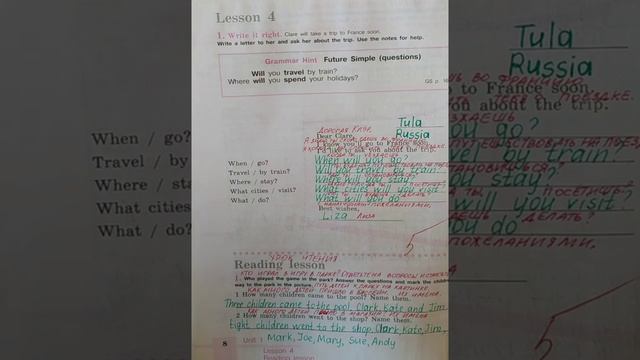 Lesson 4
1. Write it right. Clare will take a trip to France soon.
Write a letter to her and ask her about the trip. Use the notes for help.
Grammar Hint Future Simple (questions)
Will you travel by train?
Where will you spend your holidays?
GS p.
Tula
Russia
ДОРОГАЯ КЛЭР,
Dear Clare,
I know you'll go to France soon.
I'd like to ask you about the trip.
When / go?
When will you go?
Travel / by train?
Will you travel by train?
Where / stay?
Where will you stay?
What cities / visit?
What cities will you visit?
What / do?
What will you do
НАИЛУЧШИМИ ПОЖЕЛАНИЯМИ,
Best wishes,
Liza Лиза
УРОК ЧТЕНИЯ
Reading lesson
КТО ИГРАЛ В ИГРУ В ПАРКЕ? ОТВЕТЬТЕ НА ВОПРОСЫ И
1. Who played the game in the park? Answer the questions and mark the children's
way to the park in the picture. ПУТЬ ДЕТЕЙ К ПАРКУ НА КАРТИНКЕ.
КАК МНОГО ДЕТЕЙ ПРИШЛО К БАССЕЙНУ. ИХ ИМЕНА.
1 How many children came to the pool? Name them.
Three children came to the pool. Clark, Kate and Jim.
КАК МНОГО ДЕТЕЙ В МАГАЗИН. ИХ ИМЕНА
2 How many children went to the shop? Name them.
Eight children went to the shop. Clark, Kate, Jim,
8 Unit 1 Mark, Joe, Mary, Sue, Andy
Tula
Russia
to France soon
you about the trip.
When / go?
you go?
Travel / by
travel by train?
Where / sta
you stay?
What cities
will you visit?
What / do?
you do
ПОЖЕЛАНИЯМИ,
Lesson 4
Reading lesson